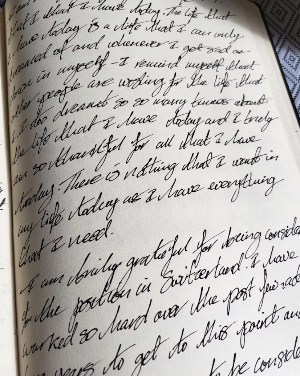 that I have today. The life that
I have today is a life that I am only
dreamed of and whenever I get sad or
down in myself I remind myself that
other people are waiting for the life that
I do dreamed so so many times about
the life that I have today and I truly
am so thankful for all that I have
today. There is nothing that I want in
my life today as I have everything
that I need.
I am truly grateful for being conside
for the position in Switzerland. I have
worked so hard over the past few
years to get to this point an
to be conside